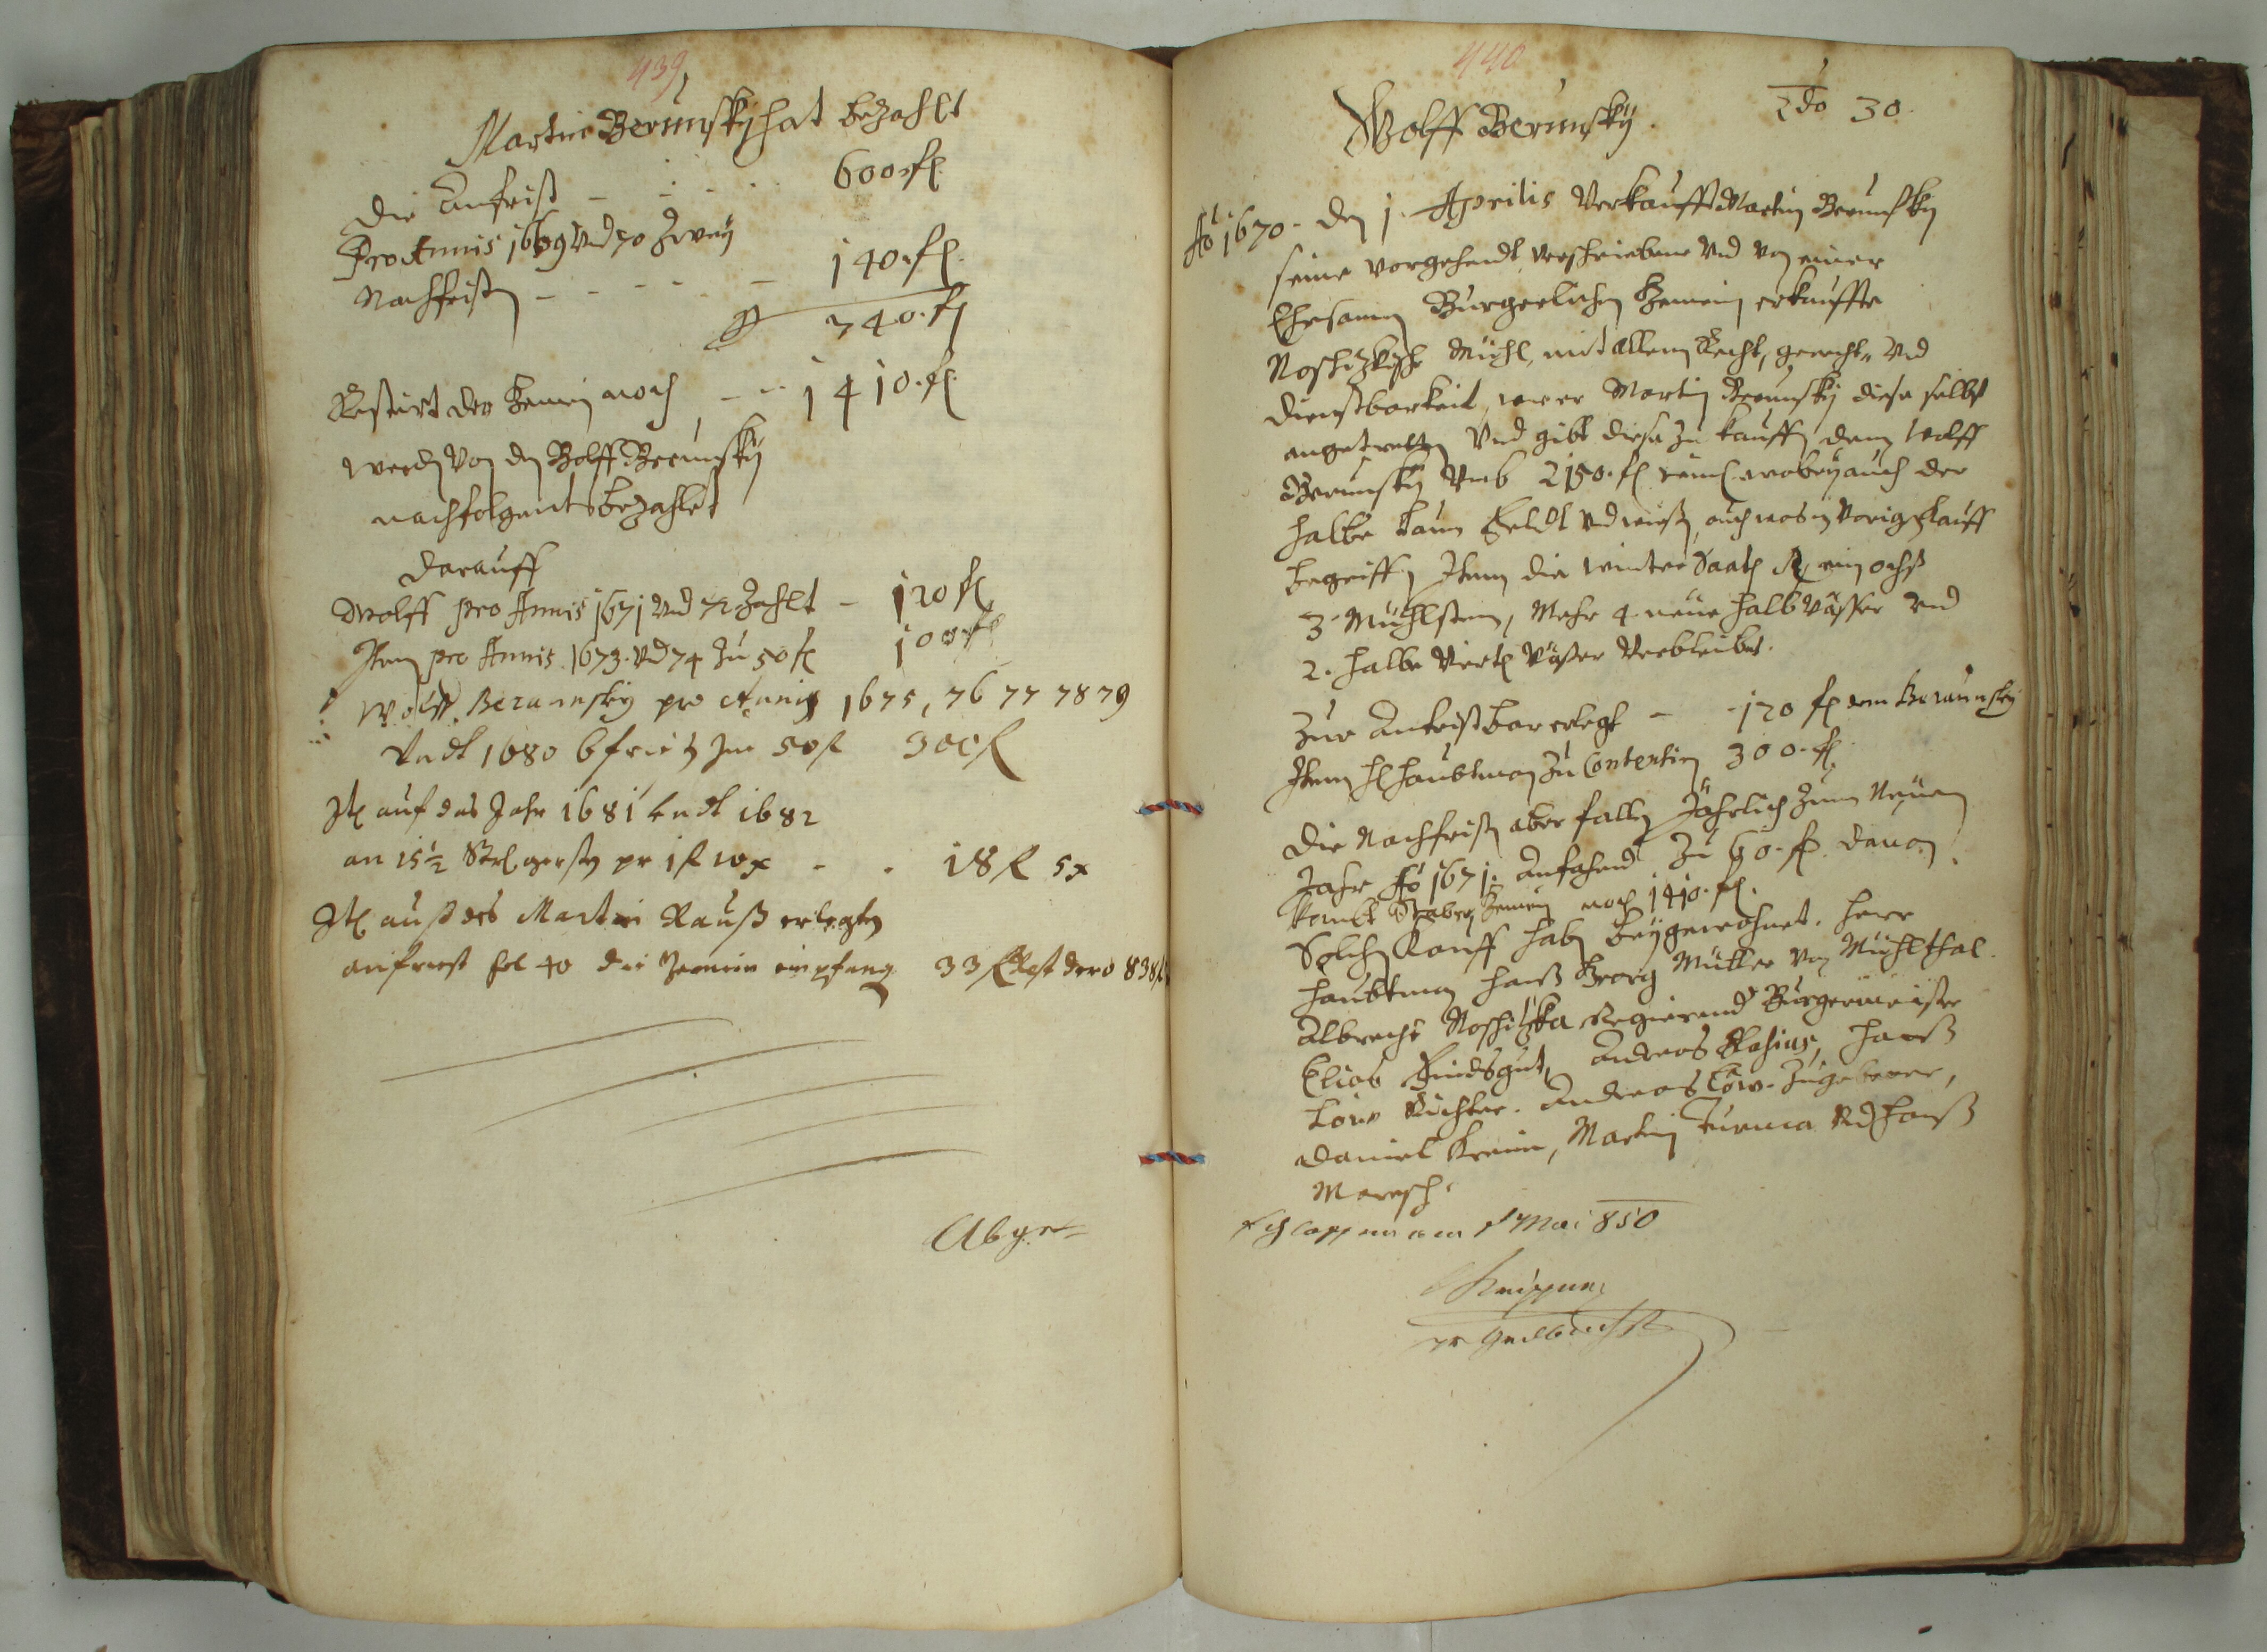 439
Martin Berunsky hat bezahlt
Die Anfrist - - - - 600 fl.
Pro Annis 1669 und 70 Zwey
Nachfristen - - - - - 140. fl.
740. fl
Restirt der Gemein noch - - 1410. fl.
werden von den Wolff Berunsky
nachfolgents bezahlet
Darauff
Wolff pro Annis 1671 und 72 Zahlt - 120 fl
Item pro Annis 1673. und 74 zu 50 fl 100 fl
Wolff Beraunsky pro Annis 1675, 76 77 78 79
Undt 1680 6 frist zu 50 fl 300 fl
It auf das Jahr 1681 undt 1682
an 15 ½ Str gersten pr 1 fl 10 x - - 18 fl 5 x
It auß des Martin Rauß erlegten
anfrist fol 40 die Gemein empfang 33 fl Rest dero 838 fl
Abge-
440
Wolff Berunsky. 30.
Ao 1670. den 1. Aprilis Verkaufft Martin Berunsky
seine vorgehendt verschriebene und von einer
Ehrsamen Burgerlichen Gemein erkauffte
Noschitzkische Mühl, mit allem Recht, gerecht- und
Dienstbarkeit, wie er Martin Berunsky diese selbst
angetretten und gibt diese zu kauffen dem Wolff
Berunsky umb 2150. fl rein. wobey auch der
halbe Feldt und wießen, auch was in vorigen Kauff
begriffen Item die winter Saath ein ochs
3. Mühlstein, Mehr 4. neue halb Vässer und
2. halbe Viertl Väßer Verbleibet.
Zur Anfrist bar erlegt - - 120 fl dem Beraunsky
Item H Haubtman zu Contentirn 300. fl.
Die Nachfristen aber fallen Jährlich zum Neuen
Jahr Ao 1671. Anfahend zu 60. fl. davon
kombt Gemein noch 1410. fl.
Solchen Kauff haben beygewohnet. Herr
Haubtman Hanß Georg Müller von Mühlthal.
Albrecht Noschitzka Regierend Burgermeister
Elias Findsgut, Andreas Hanß
Löw Richter. Andreas Löw. Zugebener,
Daniel Krein, Martin Turma und Hanß
Maresch.
am 1 Mai 850